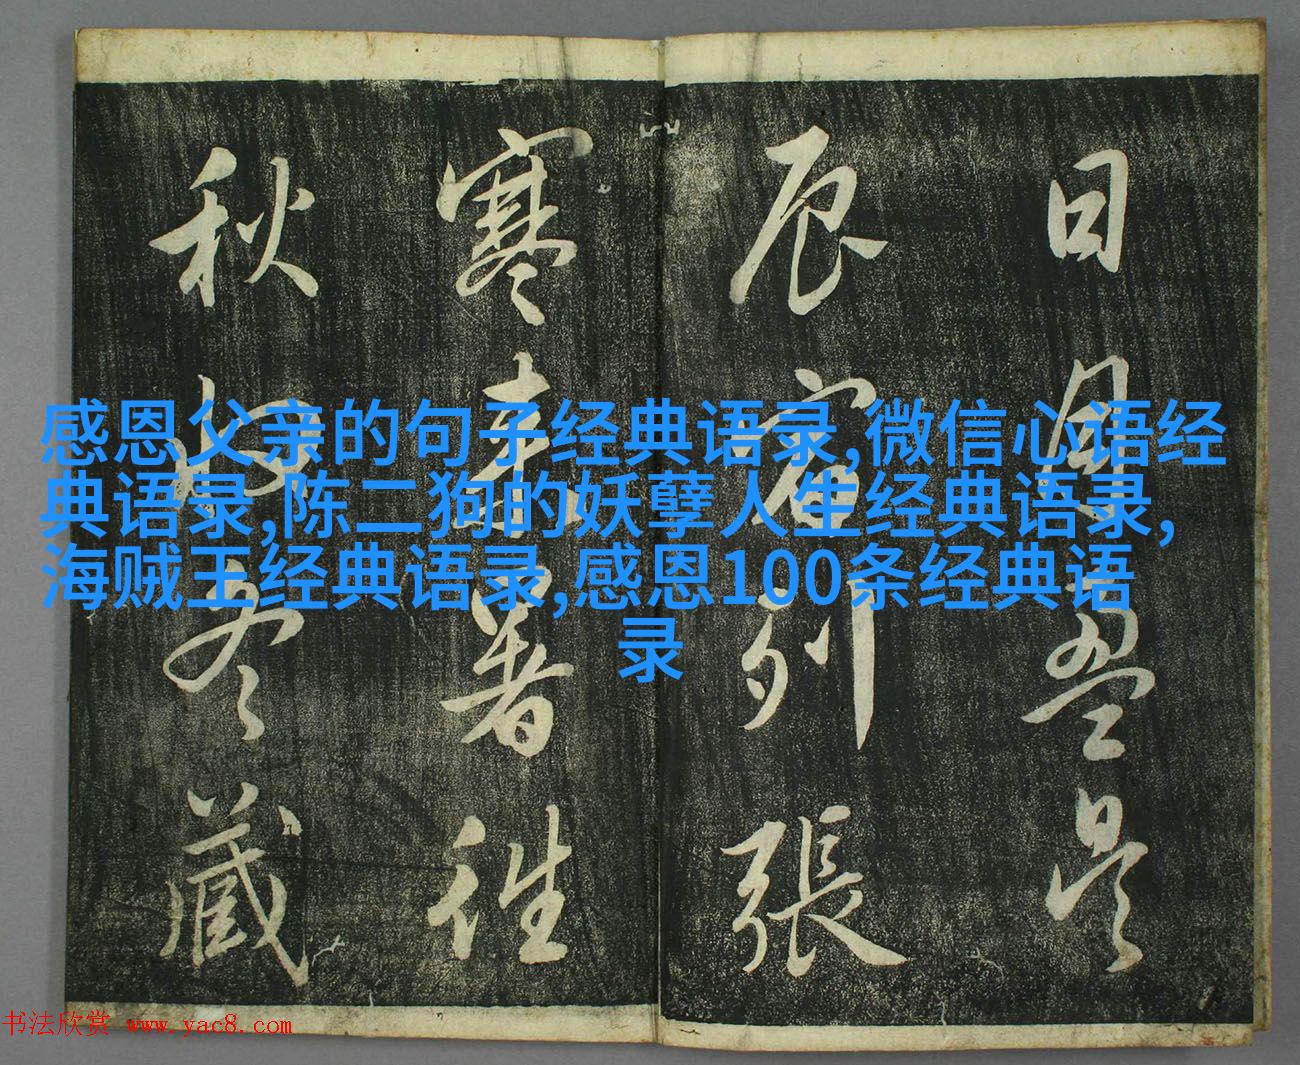 日月盈昃
辰宿列張
寒来暑往
秋收冬藏
感恩父亲的句子经典语录,微信心语经
典语录,陈二狗的妖孽人生经典语录,
海贼王经典语录,感恩100条经典语
录
书法欣赏 www.yac8.com